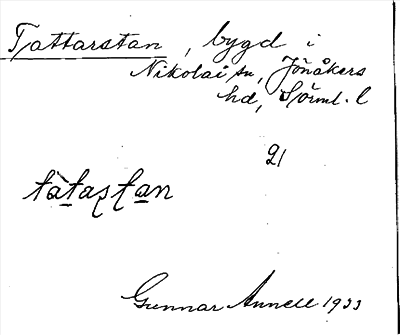 Tattarstan, bygd i
Nikolai sn, Jönåkers
hd, Sörml. l
21
Gunnar Annell 1933